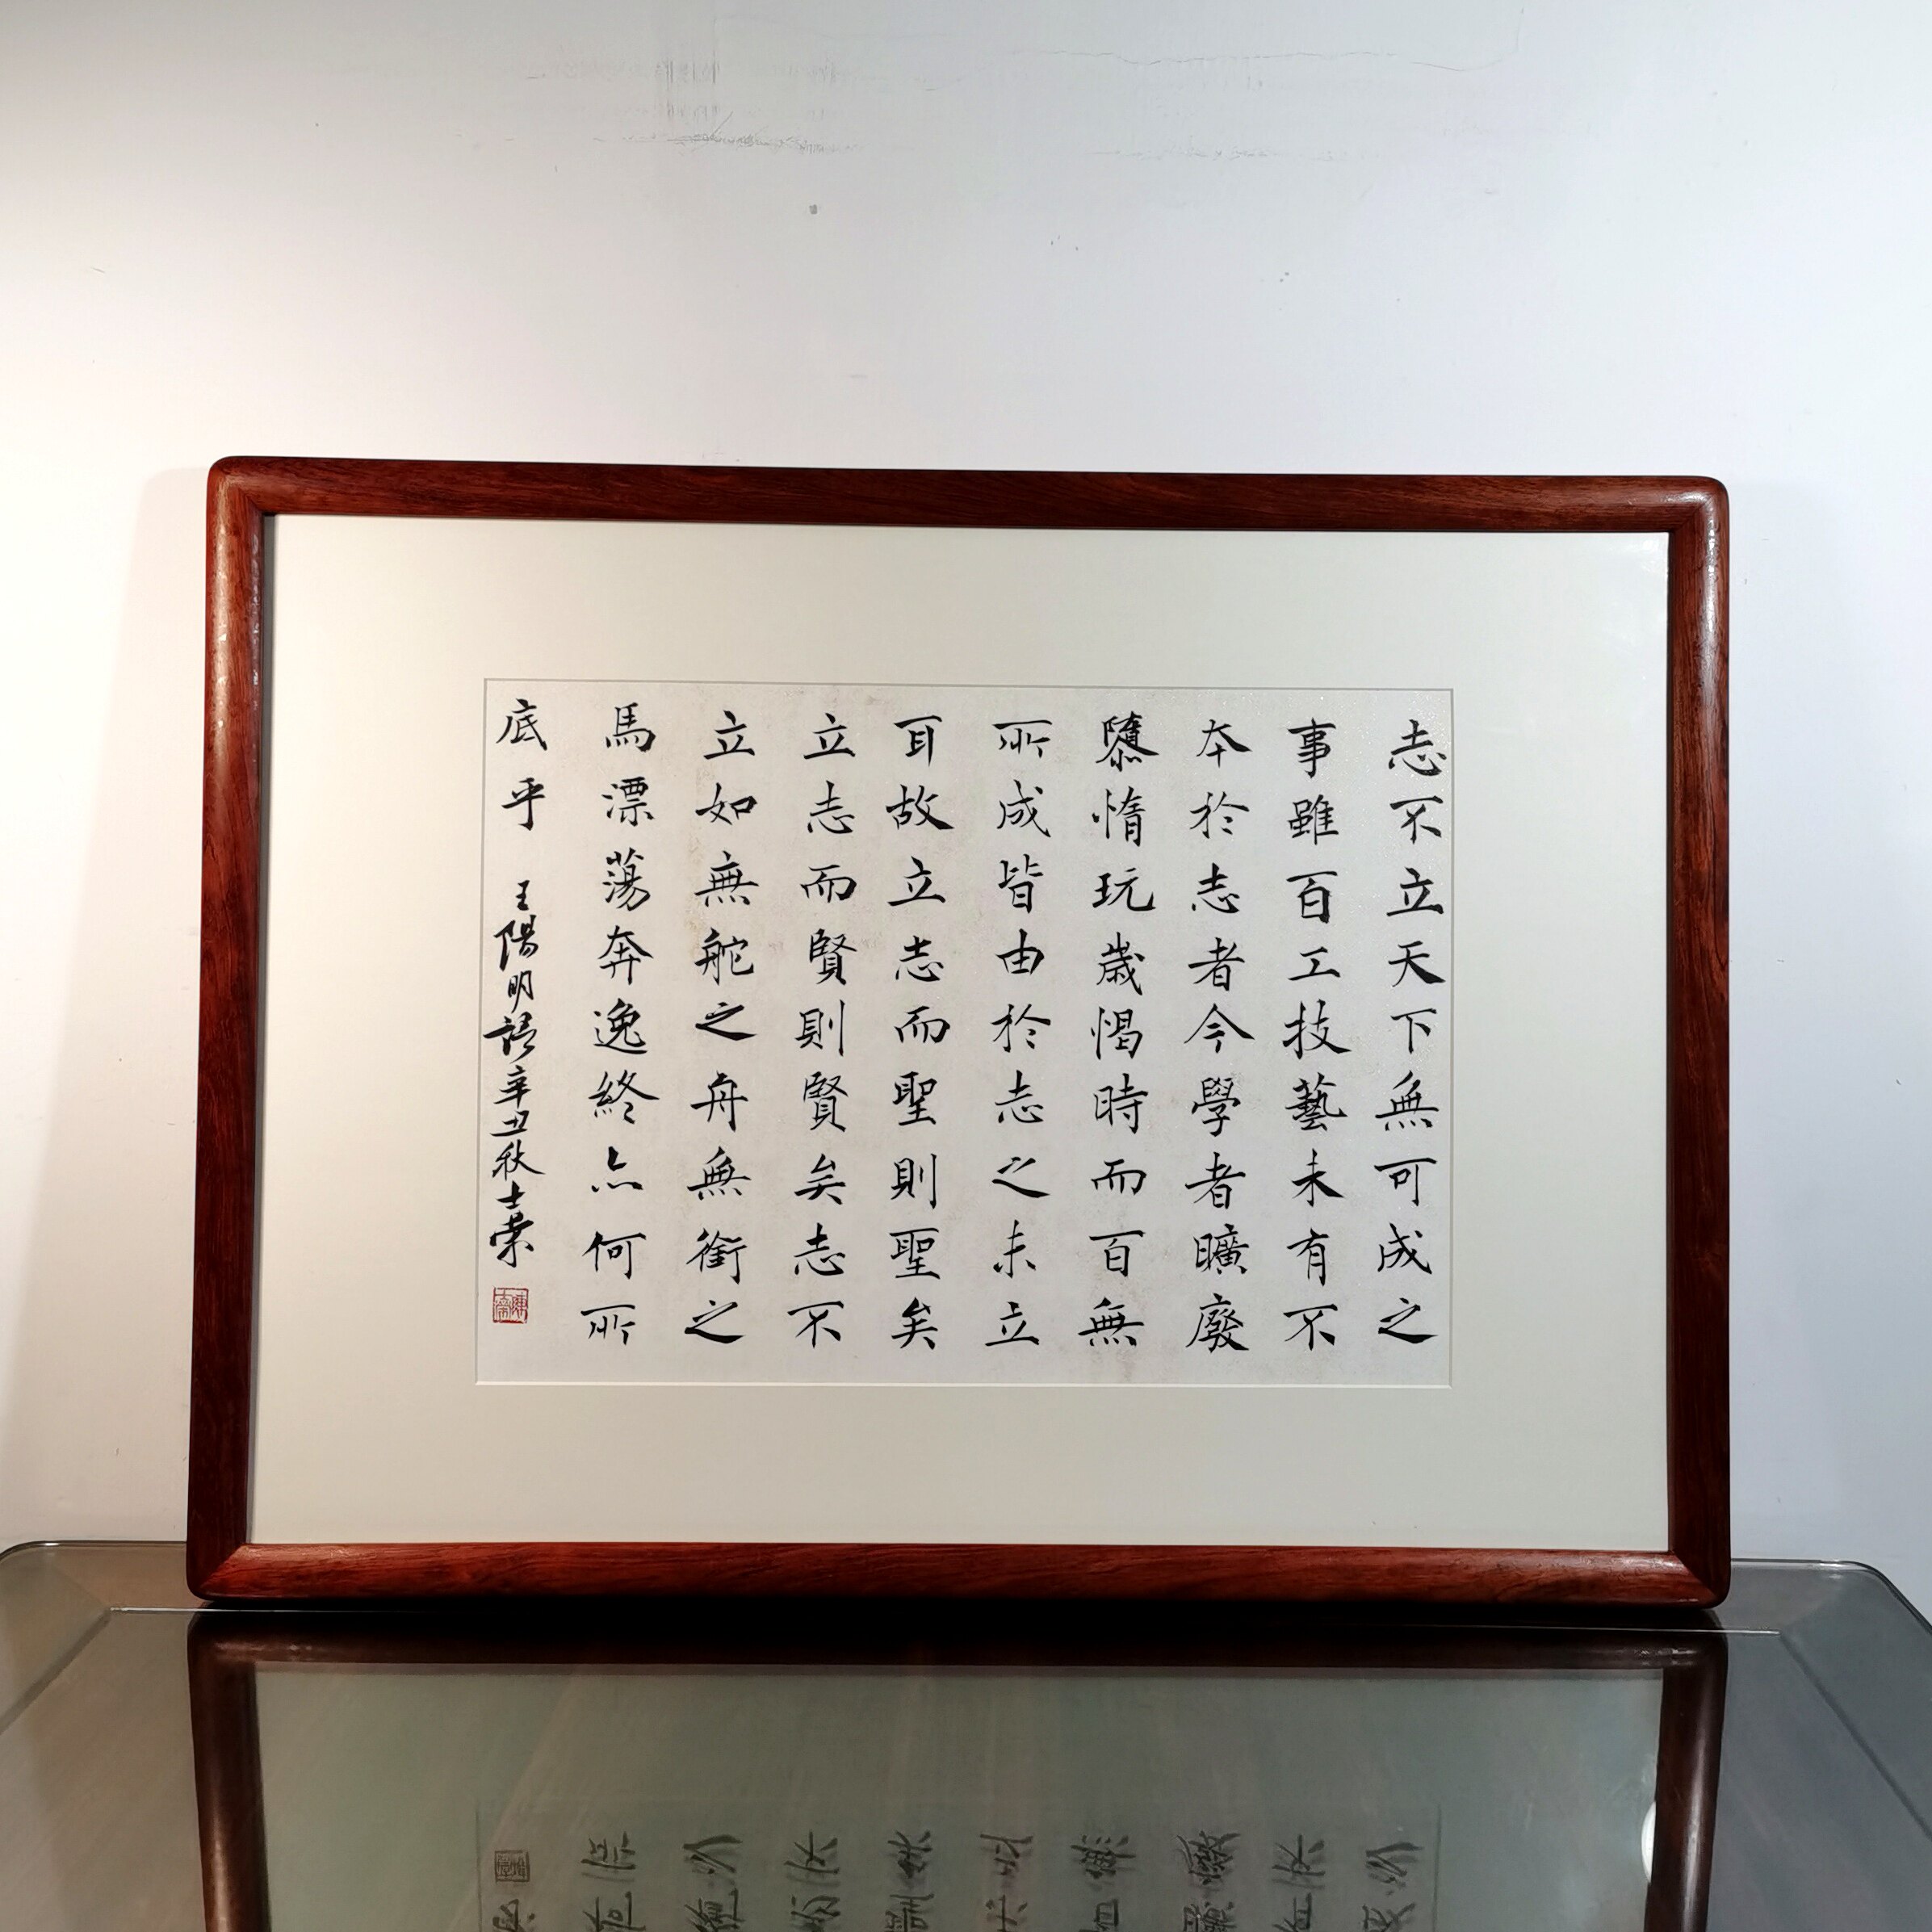 志不立天下無可成之
事雖百工技藝未有不
本於志者今學者曠廢
隳惰玩歲愒時而百無
所成皆由於志之未立
耳故立志而聖則聖矣
立志而賢則賢矣志不
立如無舵之舟無銜之
馬漂蕩奔逸終亦何所
底乎 王陽明語辛丑秋士榮